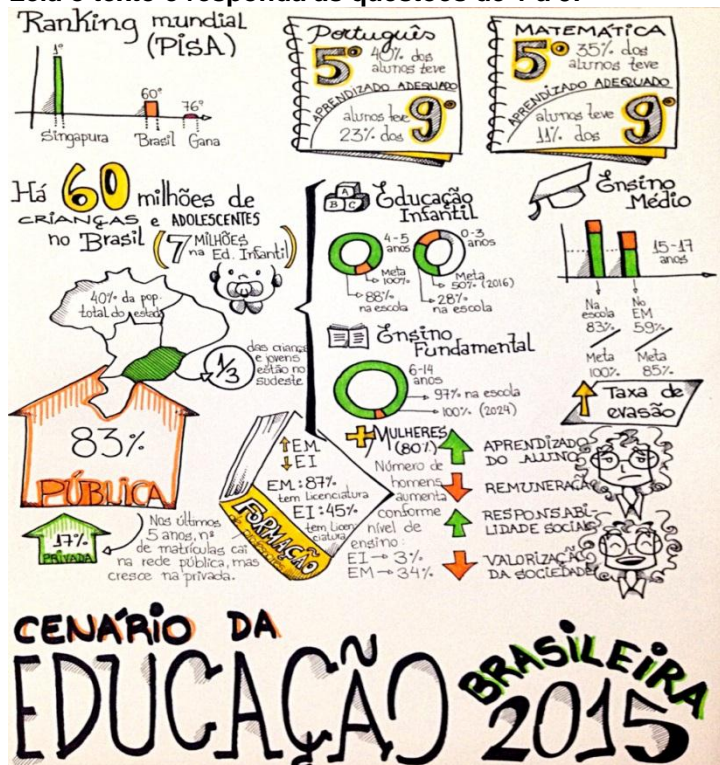 Leia o texto e responda às questões de 1 a 5.
Ranking mundial
(PiSA)
1º
60º
76º
Singapura
Brasil
Gana
Português
5º 40% dos
alunos teve
APRENDIZADO ADEQUADO
alunos teve
23% dos 9º
MATEMÁTICA
5º 35% dos
alunos teve
APRENDIZADO ADEQUADO
alunos teve
11% dos 9º
Há 60 milhões de
CRIANÇAS e ADOLESCENTES
no Brasil (7 MILHÕES
na Ed. Infantil)
40% da pop.
total do estado
1/3
das crianças
e jovens
estão no
sudeste
83%
PÚBLICA
17%
PRIVADA
Nos últimos
5 anos, nº
de matrículas cai
na rede pública, mas
cresce na privada.
A
B C
Educação
Infantil
4-5
anos
Meta
100%
88%
na escola
0-3
anos
Meta
50% (2016)
28%
na escola
Ensino
Fundamental
6-14
anos
97% na escola
100% (2024)
Ensino
Médio
15-17
anos
Na
escola
83%
Meta
100%
No
EM
59%
Meta
85%
Taxa de
evasão
EM
EI
EM: 87%
tem Licenciatura
EI: 45%
tem Licen
ciatura
FORMAÇÃO
+ MULHERES
(80%)
Número de
homens
aumenta
conforme
nível de
ensino:
EI → 3%
EM → 34%
APRENDIZADO
DO ALUNO
REMUNERAÇÃO
RESPONSABI-
LIDADE SOCIAL
VALORIZAÇÃO
DA SOCIEDADE
CENÁRIO DA
EDUCAÇÃO
BRASILEiRA
2015